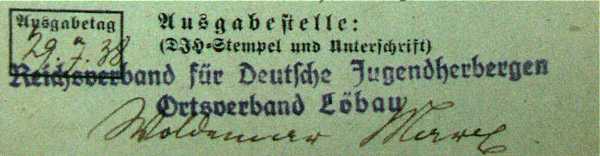 Ausgabetag
29. 7. 38
Ausgabestelle:
(DJH-Stempel und Unterschrift)
Reichsverband für Deutsche Jugendherbergen
Ortsverband Löbau
Woldemar